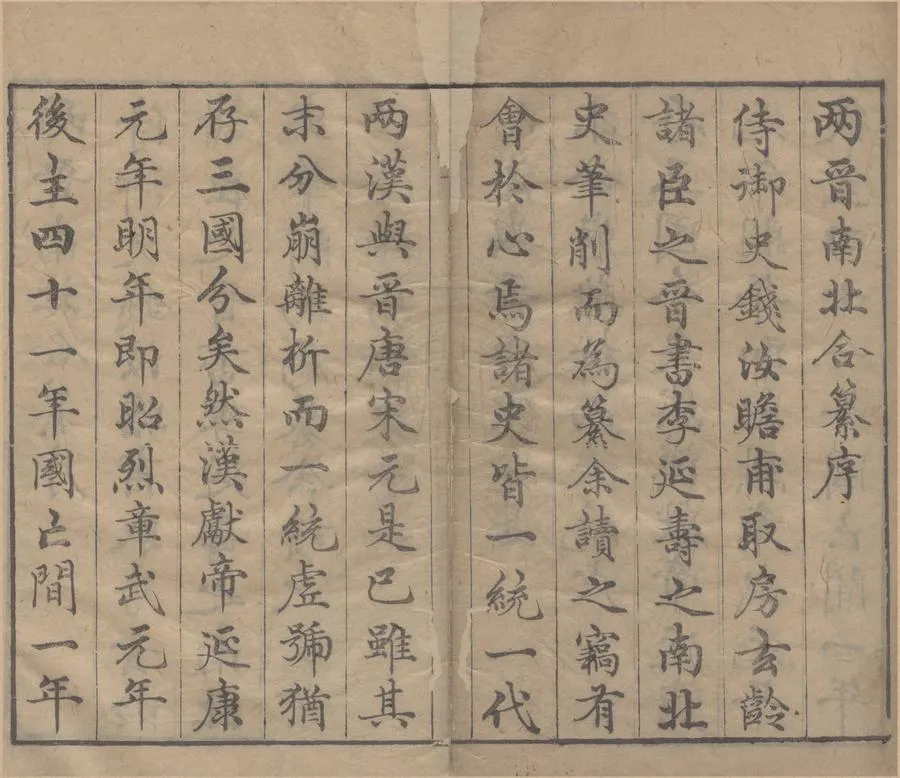 两晉南北合纂序
侍御史錢汝瞻甫取房玄齡
諸臣之晉書李延壽之南北
史筆削而為纂余讀之竊有
會於心焉諸史皆一統一代
兩漢與晉唐宋元是已雖其
末分崩離析而一統虛號猶
存三國分矣然漢獻帝延康
元年明年即昭烈章武元年
後主四十一年國亡間一年